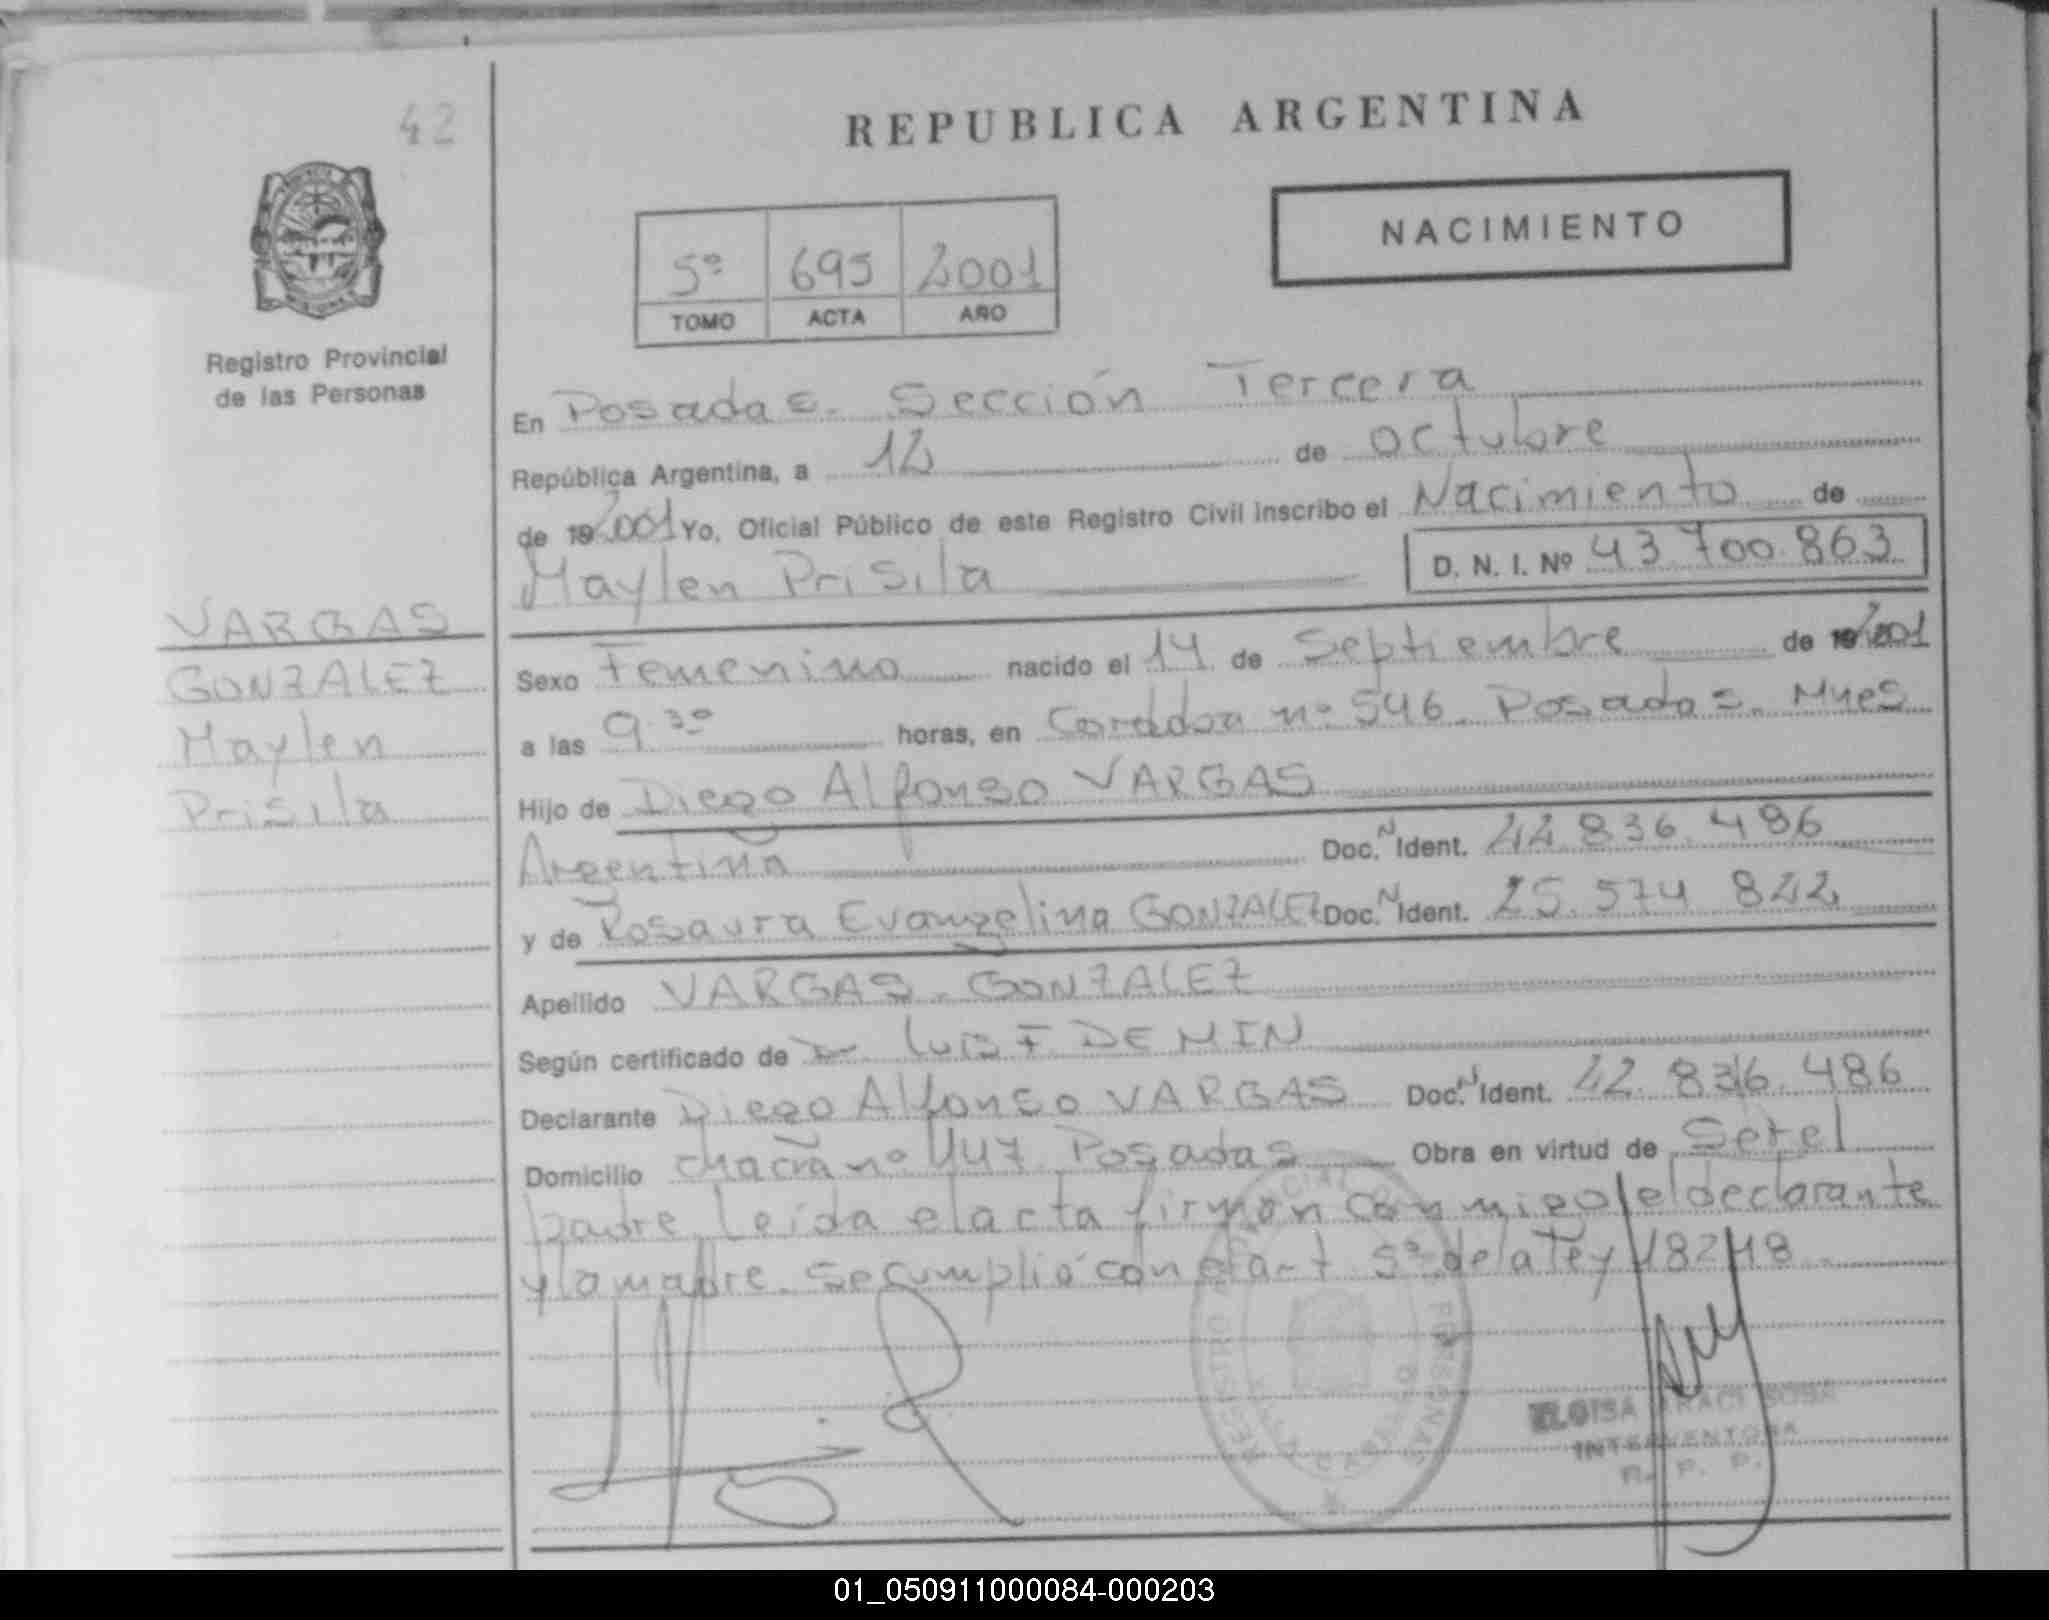 42
REPUBLICA ARGENTINA
NACIMIENTO
5º 695 2001
TOMO ACTA AÑO
Registro Provincial
de las Personas
En Posadas. Sección Tercera
República Argentina, a 12 de octubre
de 192001 Yo, Oficial Público de este Registro Civil inscribo el Nacimiento de
Maylen Prisila D. N. I. Nº 43.700.863
VARGAS
GONZALEZ
Maylen
Prisila
Sexo Femenino nacido el 14 de Septiembre de 192001
a las 9.30 horas, en Cordoba nº 546. Posadas. Mnes
Hijo de Diego Alfonso VARGAS
Argentina Doc. N Ident. 22.836.486
y de Rosaura Evangelina GONZALEZ Doc. N Ident. 25.574.822
Apellido VARGAS - GONZALEZ
Según certificado de Dr. Luis F. DEMIN
Declarante Diego Alfonso VARGAS Doc. N Ident. 22.836.486
Domicilio chacra nº 447 Posadas Obra en virtud de Ser el
padre Leida el acta firman conmigo el declarante
y la madre. Se cumplió con el art 5º de la ley 18248
REGISTRO PROVINCIAL DE LAS PERSONAS
ELOISA ARACI SOSA
INTERVENTORA
R. P. P.
01_050911000084-000203